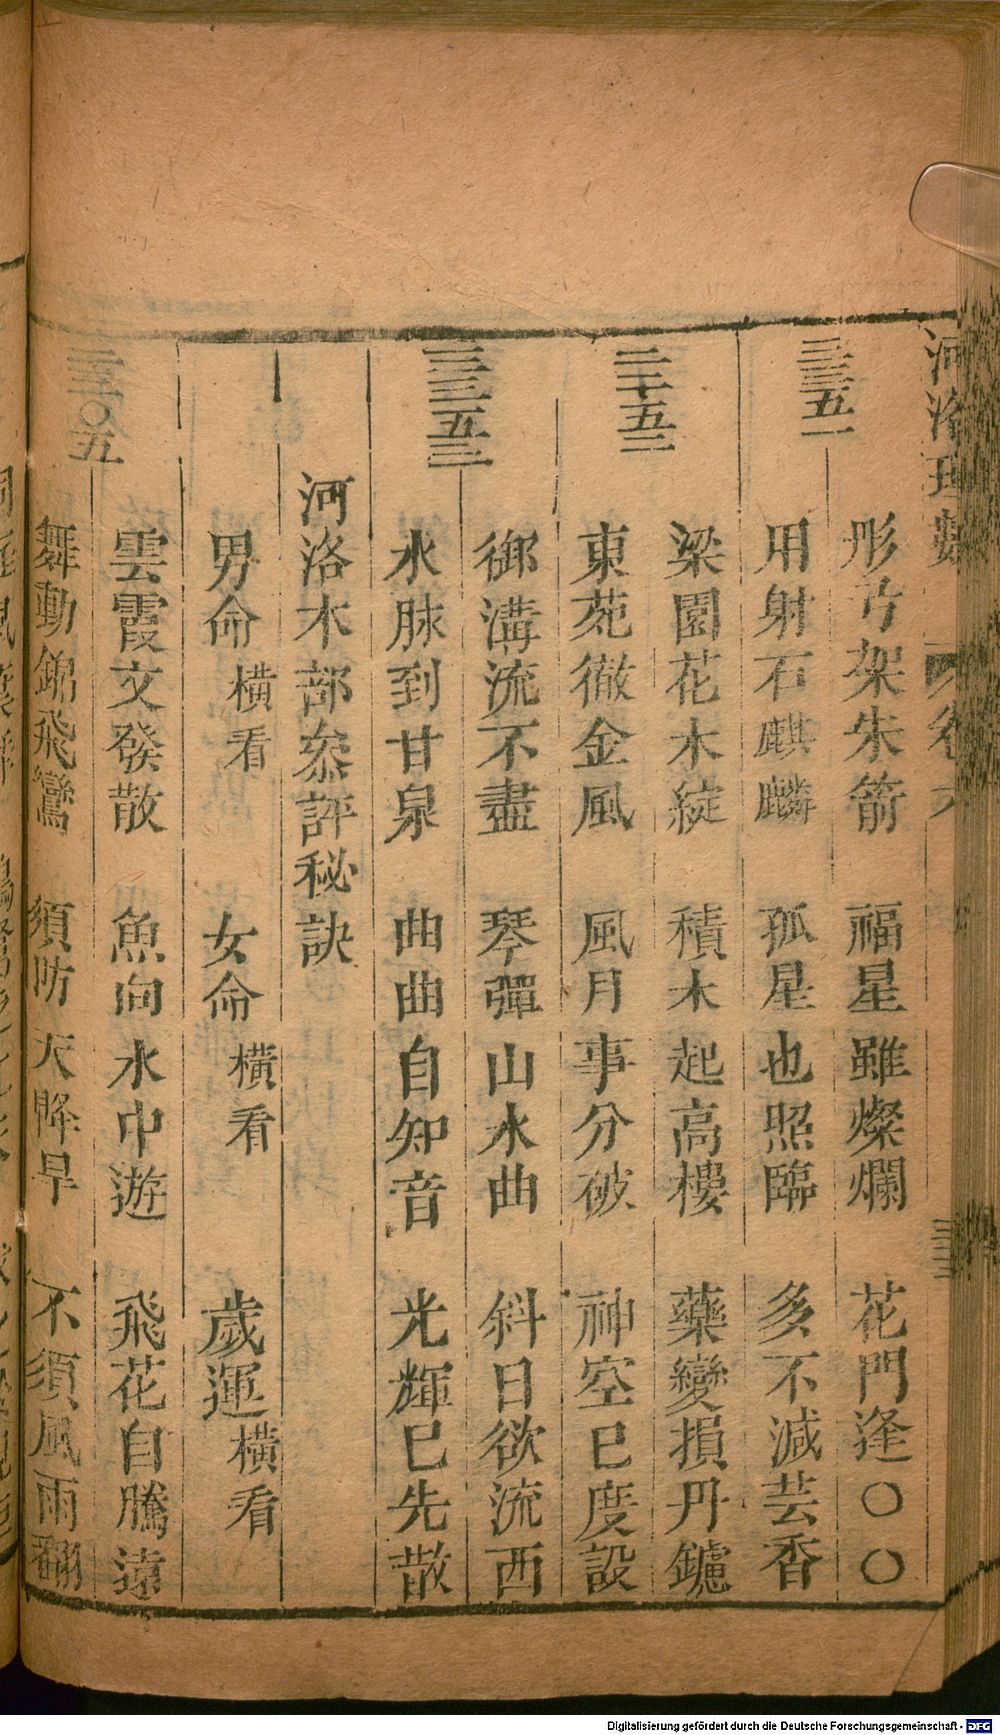 河洛理數 卷六
三三五一
彤弓架朱箭 福星雖燦爛 花門逢〇〇
用射石麒麟 孤星也照臨 多不減芸香
二十五三
梁園花木綻 積木起高樓 藥變損丹鑪
東苑徹金風 風月事分破 神空已度設
三三五三
御溝流不盡 琴彈山水曲 斜日欲流西
水脉到甘泉 曲曲自知音 光輝已先散
河洛木部叅評秘訣
男命橫看 女命橫看 歲運橫看
三三〇五
雲霞文發散 魚向水中遊 飛花自騰遠
舞動錦飛鸞 須防天降旱 不須風雨翻
Digitalisierung gefördert durch die Deutsche Forschungsgemeinschaft - DFG